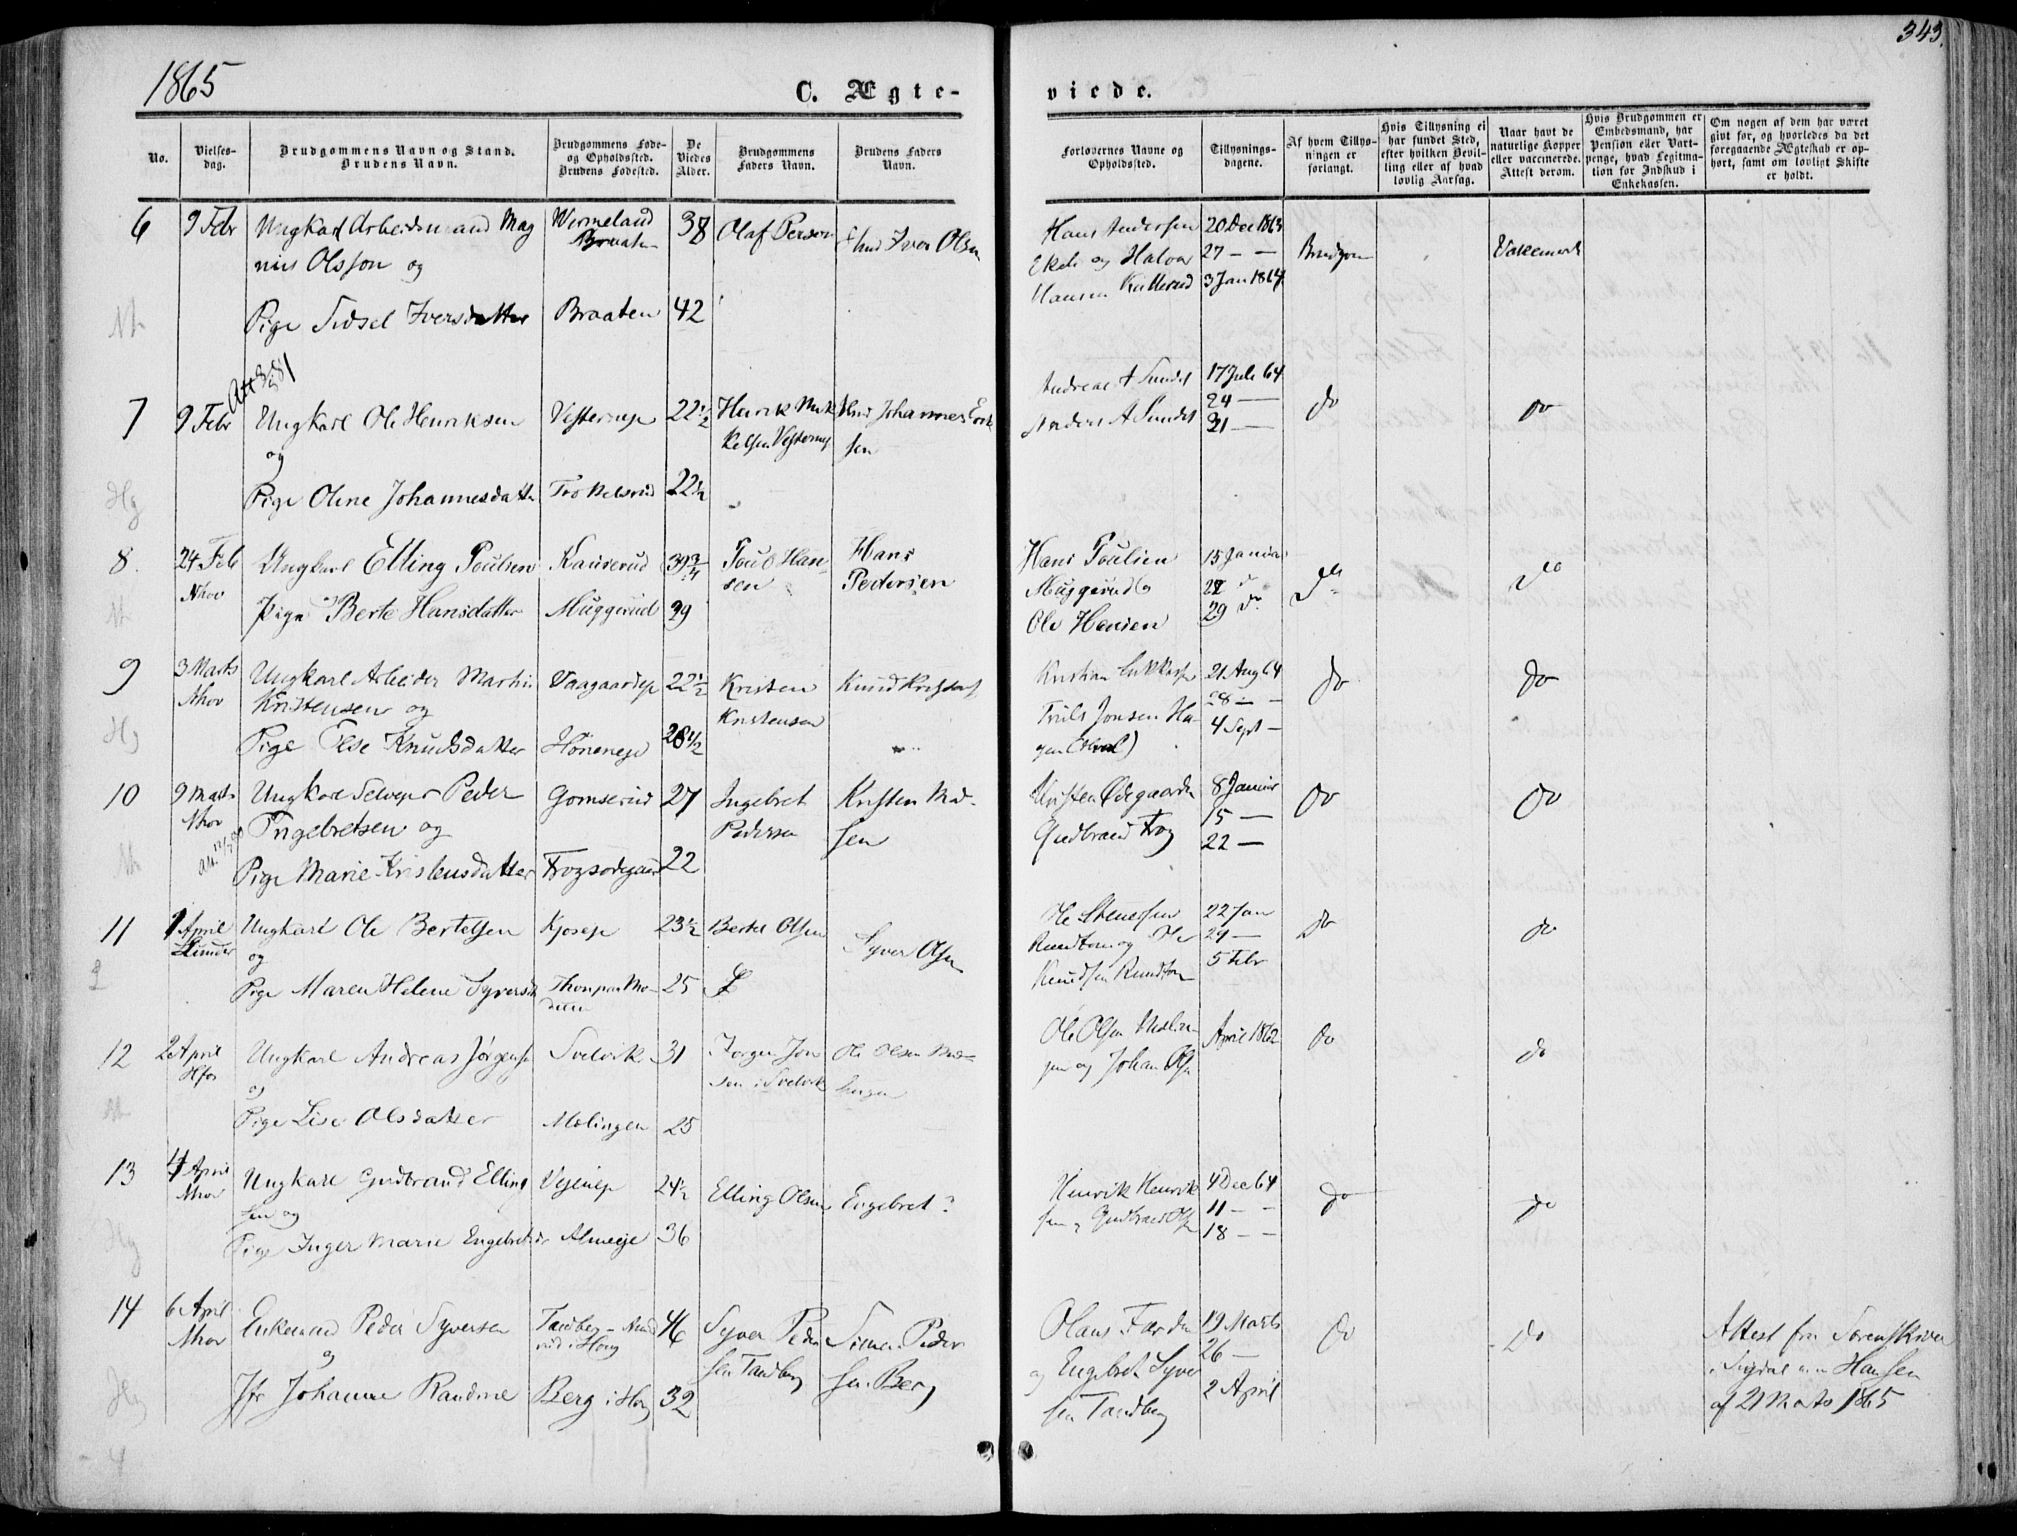 1865
C. Ægte-
No.
Vielses-
dag.
Brudgommens Navn og Stand.
Brudens Navn.
Brudgommens Føde-
og Opholdssted.
Brudens Fødested.
De
Viedes
Alder.
Brudgommens
Faders Navn.
Brudens Faders
Navn.
6
9 Febr
Ungkarl Arbeidsmand Mag
nus Olsson og
Pige Sidsel Iversdatter
Wermeland
Braaten
Braaten
38
42
Olaf Person
Iver Olsen
7
9 Febr
Ungkarl Ole Henriksen
og
Pige Oline Johannesdatter
22 1/2
22 1/2
Henrik Mik
kelsen
Johannes Erik
sen
8.
24 Feb
Nhov
Ungkarl Elling Poulsen
og
Pige Berte Hansdatter
Kauserud
Muggerud
39 3/4
39
Poul Han-
sen
Hans
Pedersen
9
3 Marts
Nhov
Ungkarl Arbeider Martin
Kristensen og
Pige Else Knudsdatter
22 1/2
28 1/2
Kristen
Kristensen
Knud
10
9 Marts
Nhov
Ungkarl Selveier Peder
Ingebretsen og
Pige Marie Kristensdatter
Gomserud
27
22
Ingebret
Pedersen
Kristen
sen
11
April
Ungkarl Ole Bertelsen
og
Pige Maren Helene
23 1/2
25
Bertel Olsen
Syver Olsen
12
2 April
Ungkarl Andreas Jørgensen
og
Pige Lise Olsdatter
Svelvik
Molingen
31
25
Jørgen
sen i Svelvik
Ole Olsen
13
4 April
Nhov
Ungkarl Gudbrand Elling
sen og
Pige Inger Marie
Almeie
24 1/2
36
Elling Olsen
Engebret ?
14
6 April
Nhov
Enkemand Peder Syversen
og
Jfr Johanne Randine
Tandberg
Berg i Houg
46
32
Syver Peder
sen Tandberg
Simen Peder
sen Berg
343.
viede.
Forlovernes Navne og
Opholdssted.
Tillysnings-
dagene.
Af hvem Tillys-
ningen er
forlangt.
Hvis Tillysning ei
har fundet Sted,
efter hvilken Bevil-
ling eller af hvad
lovlig Aarsag.
Naar havt de
naturlige Kopper
eller vaccinerede.
Attest derom.
Hvis Brudgommen er
Embedsmand, har
Pension eller Vart-
penge, hvad Legitima-
tion for Indskud i
Enkekassen.
Om nogen af dem har været
givt før, og hvorledes da det
foregaaende Ægteskab er op-
hørt, samt om lovligt Skifte
er holdt.
Hans Andersen
og Halvor
Hansen
20 Dec 1863
27 — —
3 Jan 1864
Brudgom
Andreas A Sundet
Anders A Sundet
17 Juli 64
24 —
31 —
do
do
Hans Poulsen
Muggerud og
Ole Hansen
15 Januar
22 do
29 do
do
do
Kristian
Truls Jonsen Ha-
gen
21 Aug 64
28 — —
4 Sept —
do
do
Kristen Ødegaarden
Gudbrand Frog
8 Januar
15 —
22 —
do
do
Ole Steensen
og Ole
Knudsen
22 Jan
29 —
5 Febr
do
do
Ole Olsen
gen og Johan Olsen
April 1862
do
do
Henrik Henrik
sen og Gudbrand Olsen
4 Dec 64
11 — —
18 — —
do
do
Olaus Farden
og Engebret Syver
sen Tandberg
19 Marts
26 —
2 April
do
do
Attest fra Sorenskriver
i Sigdal Hansen
af 21 Marts 1865